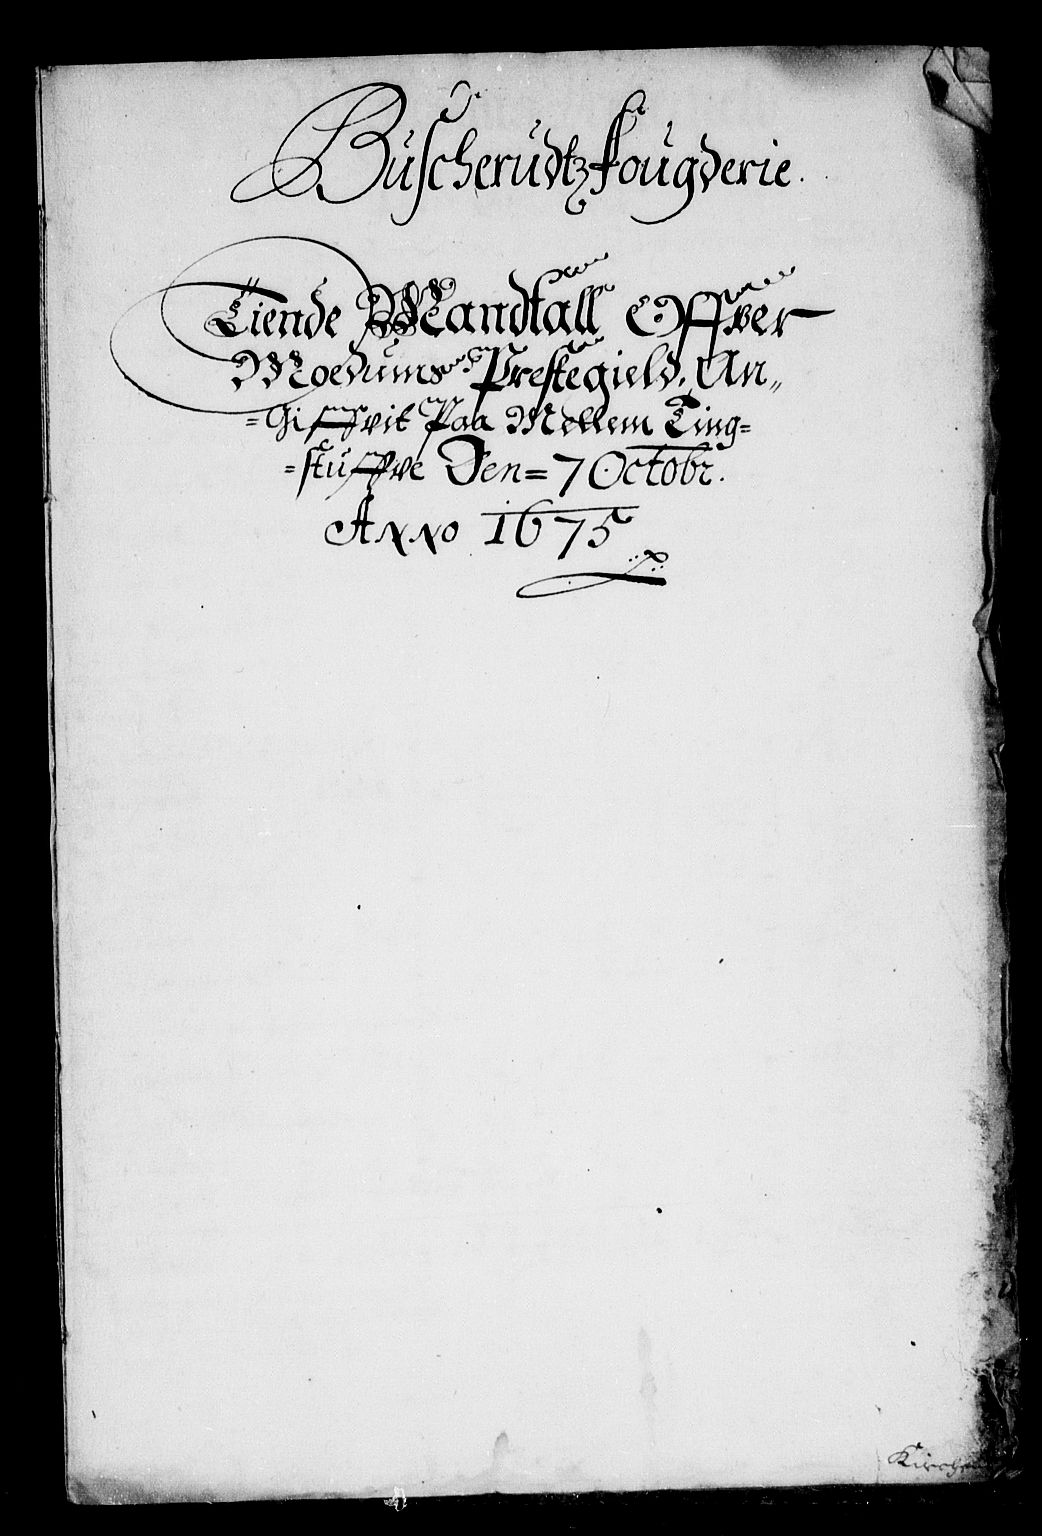 Büscherüdtz fougderie.
Tiende Mandtall Offver
Moedums Prestegield, An„
=Giffvit Paa Mellem Ting=
=stuffve Den=7 Octobr.
Anno 1675